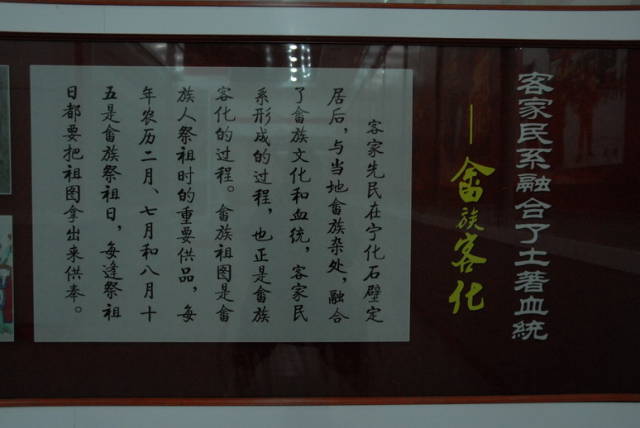 客家民系融合了土著血統
—畲族客化
客家先民在宁化石壁定
居后，与当地畲族杂处，融合
了畲族文化和血统，客家民
系形成的过程，也正是畲族
客化的过程。畲族祖图是畲
族人祭祖时的重要供品，每
年农历二月、七月和八月十
五是畲族祭祖日，每逢祭祖
日都要把祖图拿出来供奉。